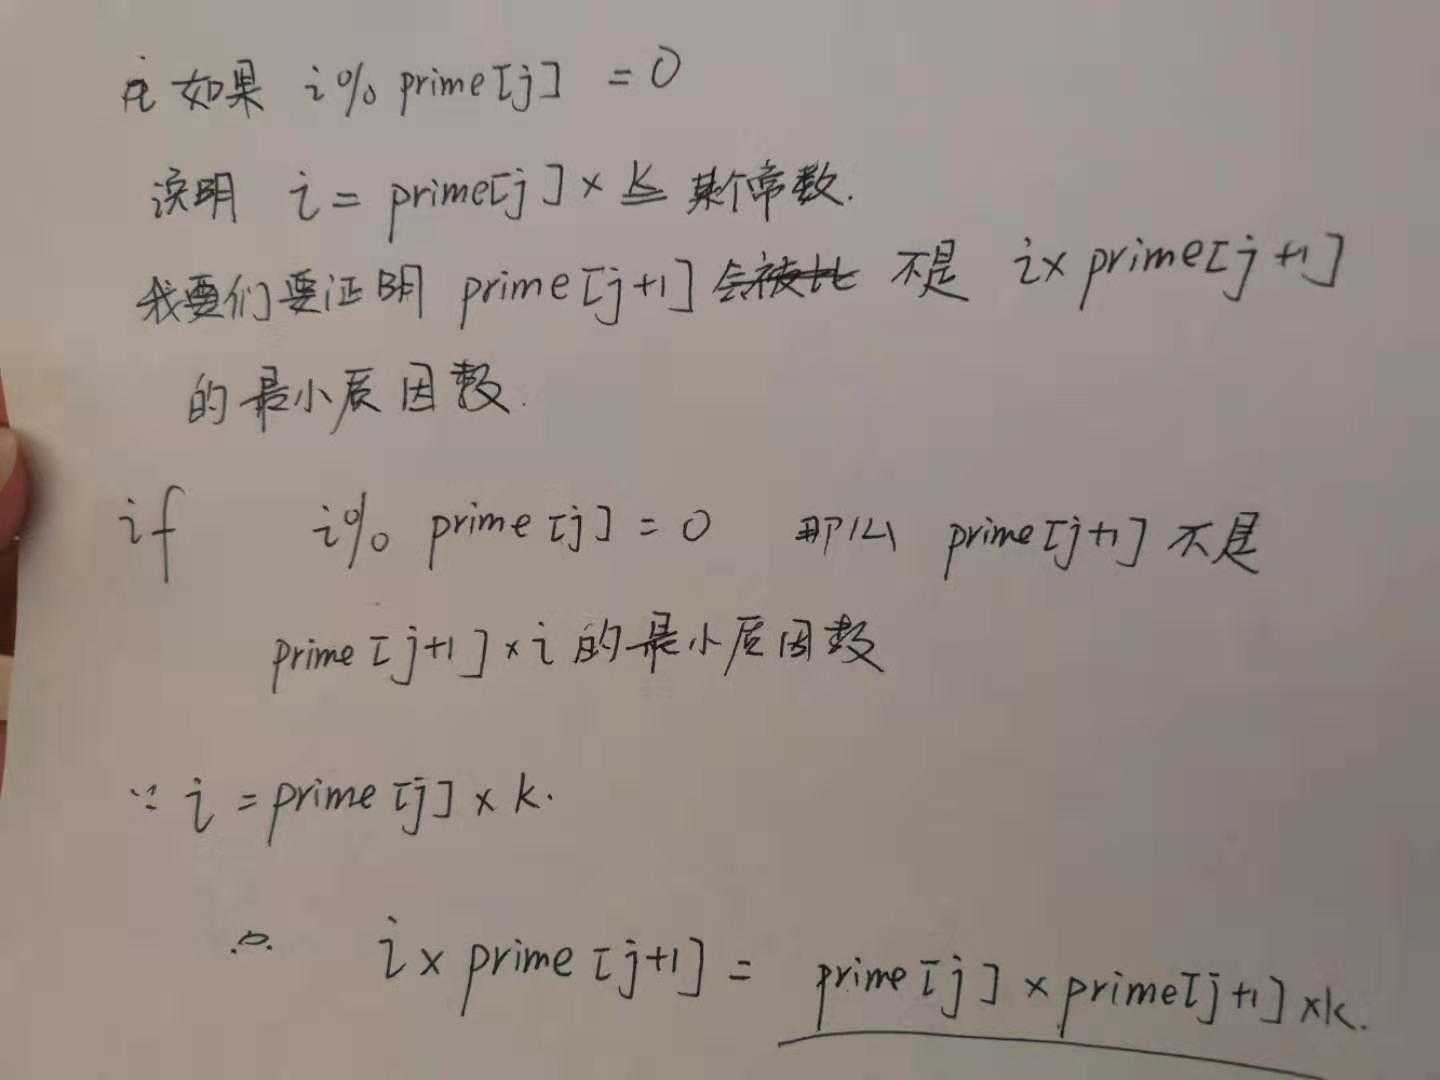 如果 i % prime[j] = 0
说明 i = prime[j] × k 某个常数.
我们要证明 prime[j+1] 不是 i× prime[j+1]
的最小质因数.
if i% prime[j] = 0 那么 prime[j+1] 不是
prime[j+1] × i 的最小质因数
∵ i = prime[j] × k.
∴ i × prime[j+1] = prime[j] × prime[j+1] ×k.